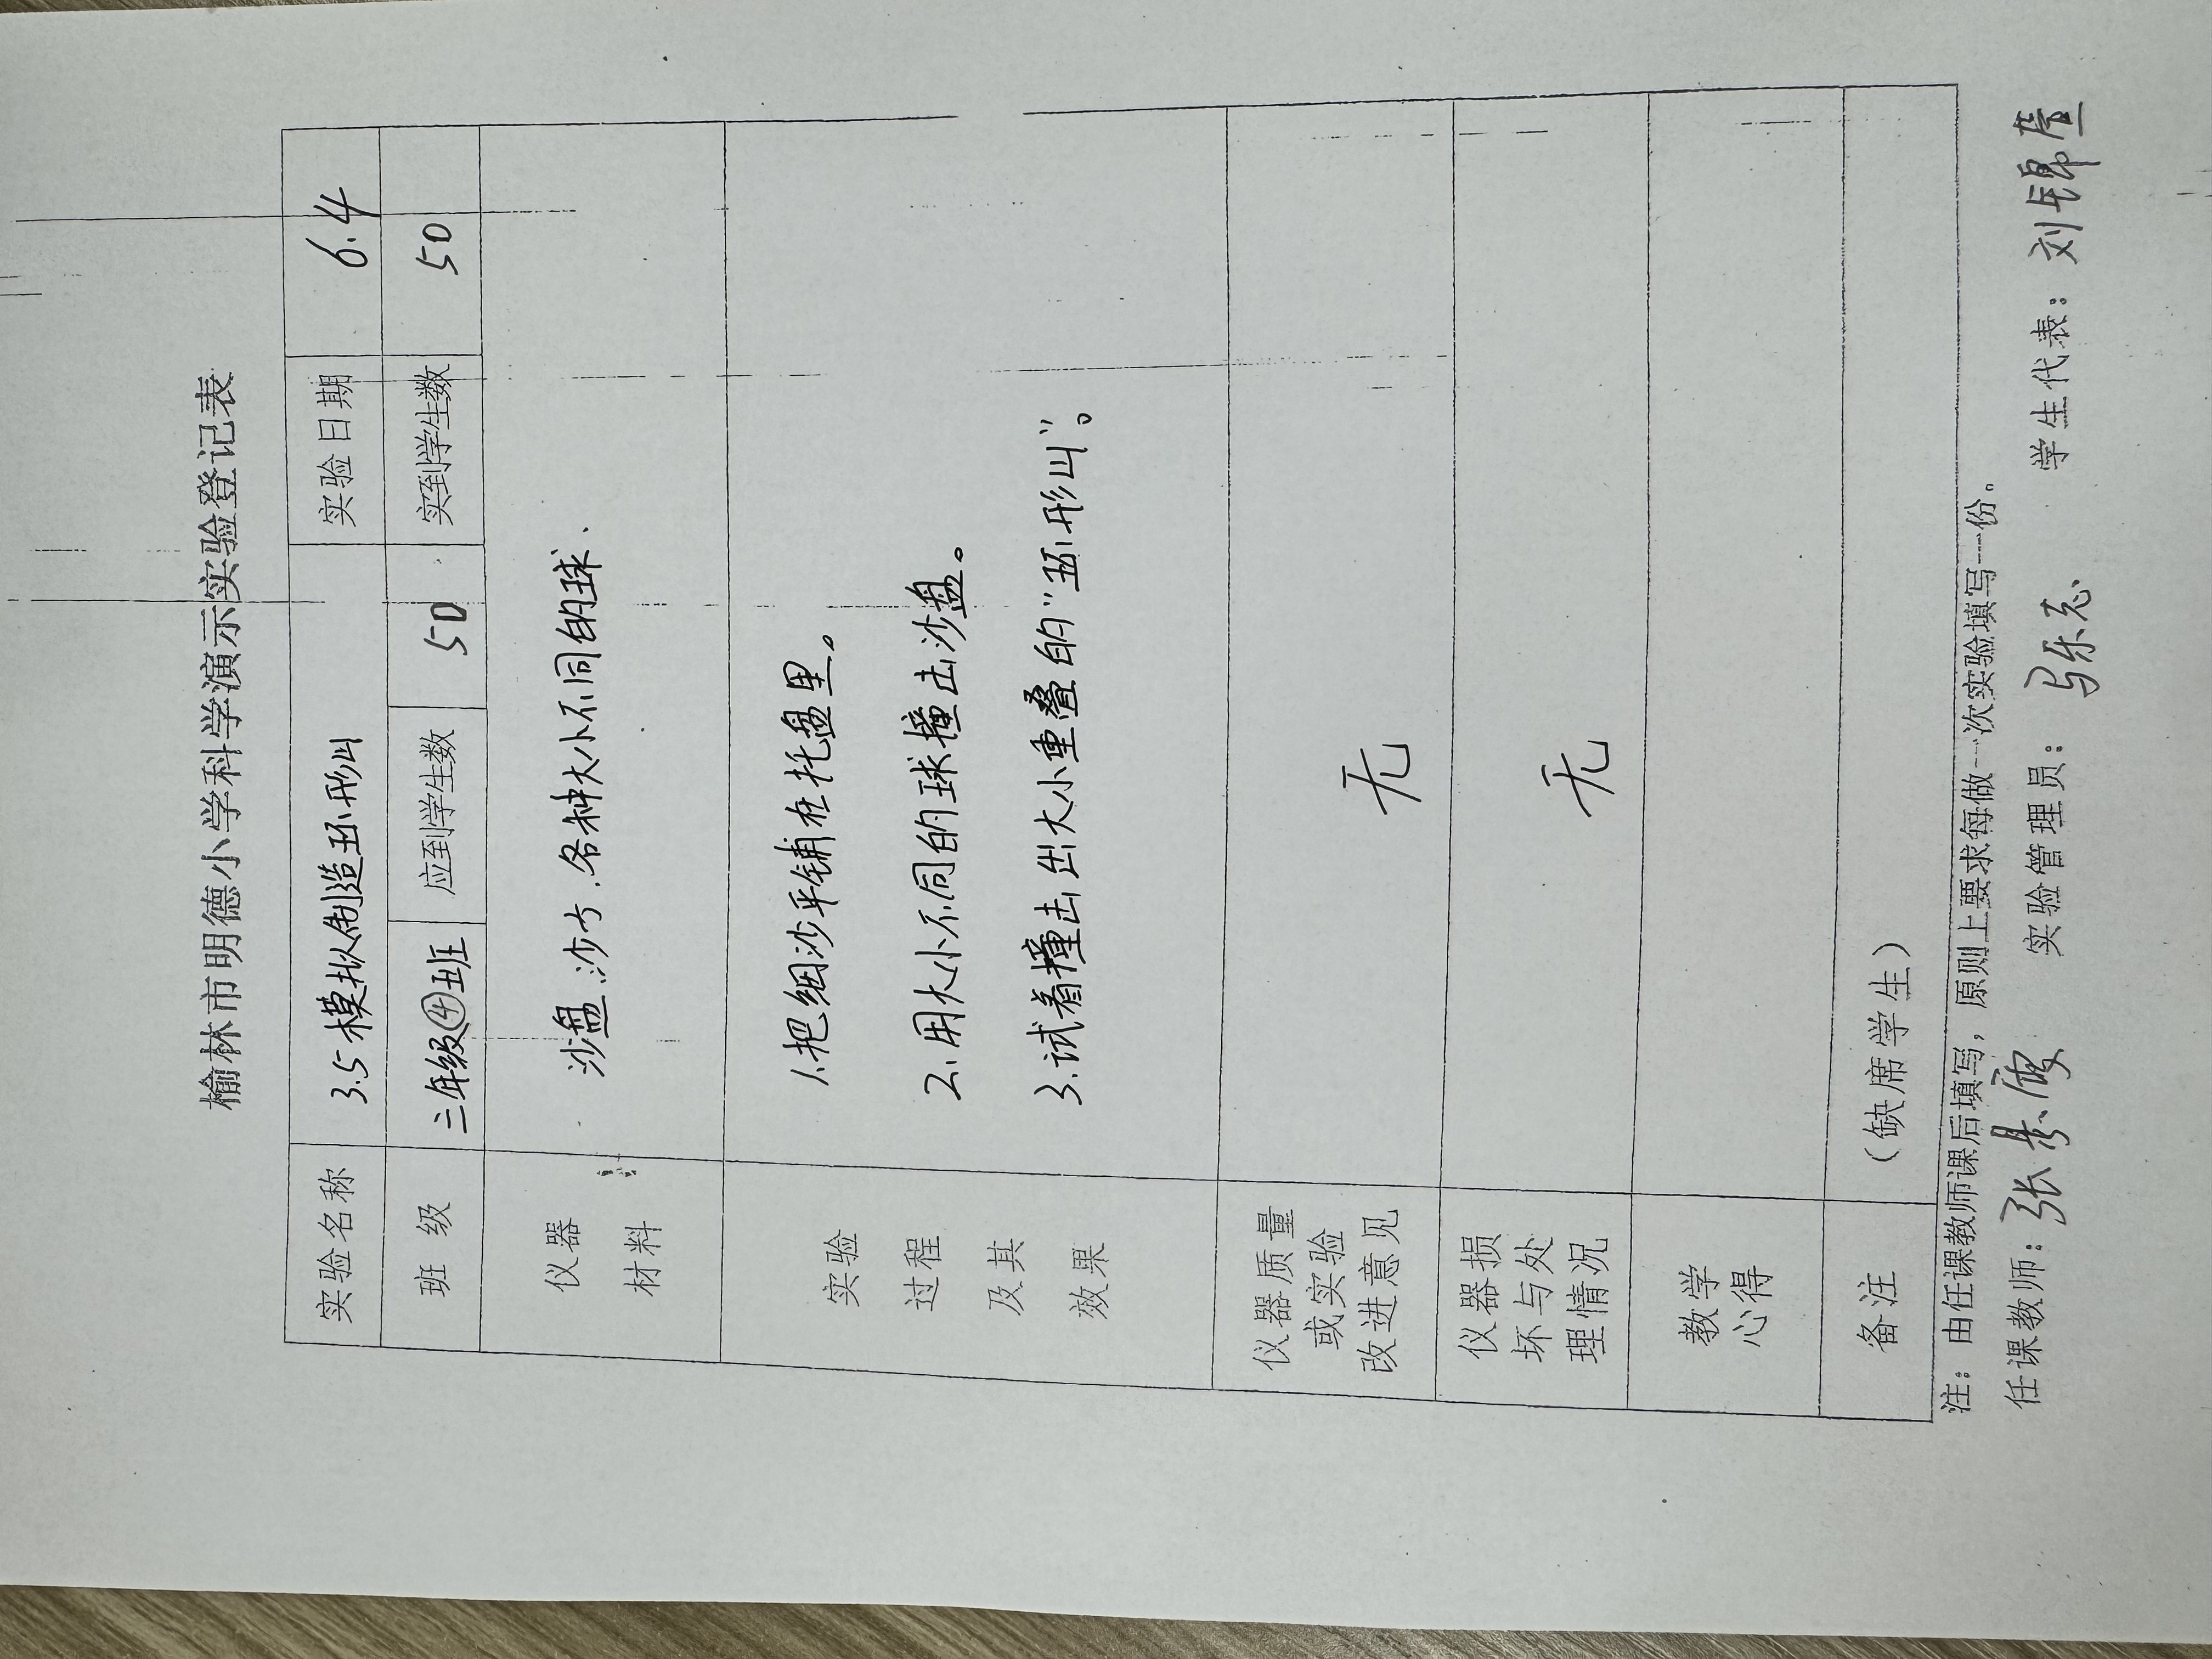 榆林市明德小学科学演示实验登记表
实验名称 3.5模拟制造环形山 实验日期 6.4
班 级 三年级④班 应到学生数 50 实到学生数 50
仪器
材料
沙盘、沙子、各种大小不同的球、
实验
过程
及其
效果
1.把细沙平铺在托盘里。
2.用大小不同的球撞击沙盘。
3.试着撞击出大小重叠的"环形山"。
仪器质量
或实验
改进意见
无
仪器损
坏与处
理情况
无
教学
心得
备注 （缺席学生）
注：由任课教师课后填写，原则上要求每做一次实验填写一份。
任课教师：张 实验管理员：马乐 学生代表：刘锦